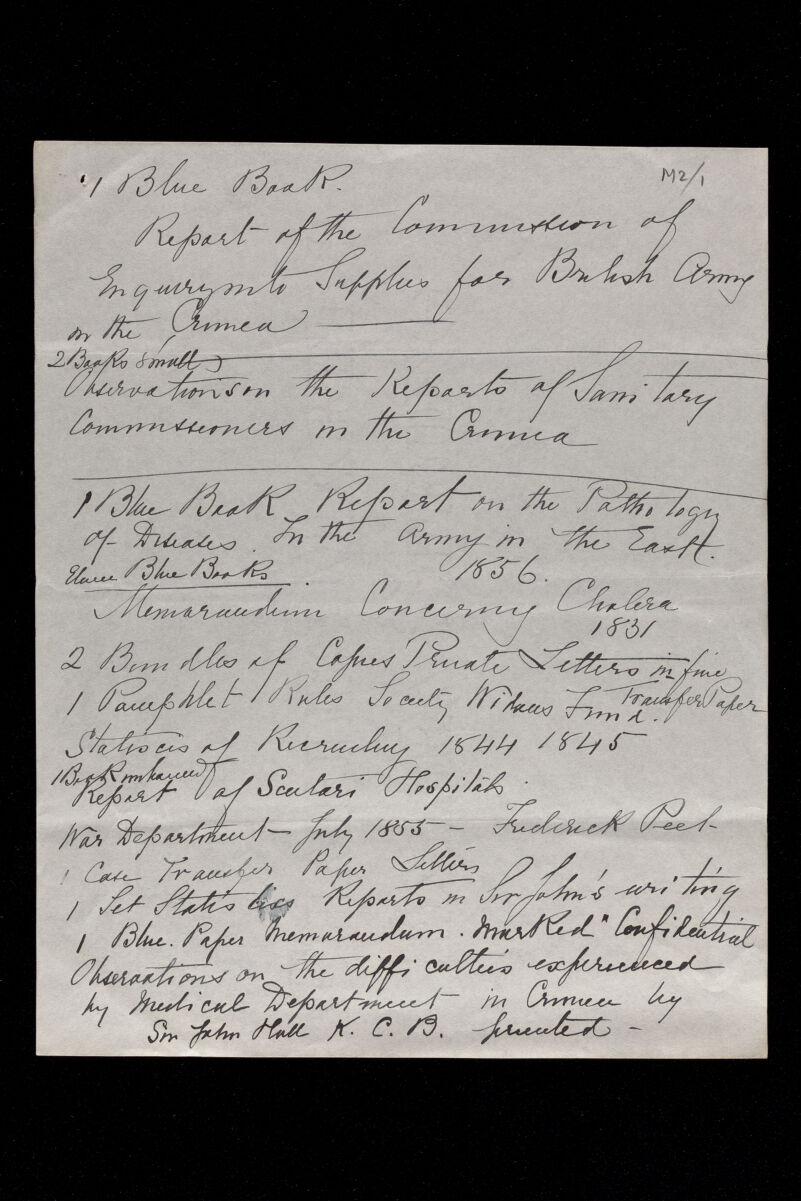 1 Blue Book. M2/1
Report of the Commission of
Enquiry into Supplies for British Army
in the Crimea
2 Books small
Observations on the Reports of Sanitary
Commissioners in the Crimea
1 Blue Book Report on the Pathology
of Diseases. In the Army in the East.
Blue Books 1856.
Memorandum Concerning Cholera
1831
2 Bundles of Copies Private Letters in fine
Transfer Paper
1 Pamphlet Rules Society Widows Fund.
Statistics of Recruiting 1844 1845
1 Book
Report of Scutari Hospitals.
War Department July 1855 - Frederick Peel
1 Case Transfer Paper Letters
1 Set Statistics Reports in Sir John's writing
1 Blue. Paper Memorandum. Marked "Confidential
Observations on the difficulties experienced
by Medical Department in Crimea by
Sir John Hall K. C. B. printed -